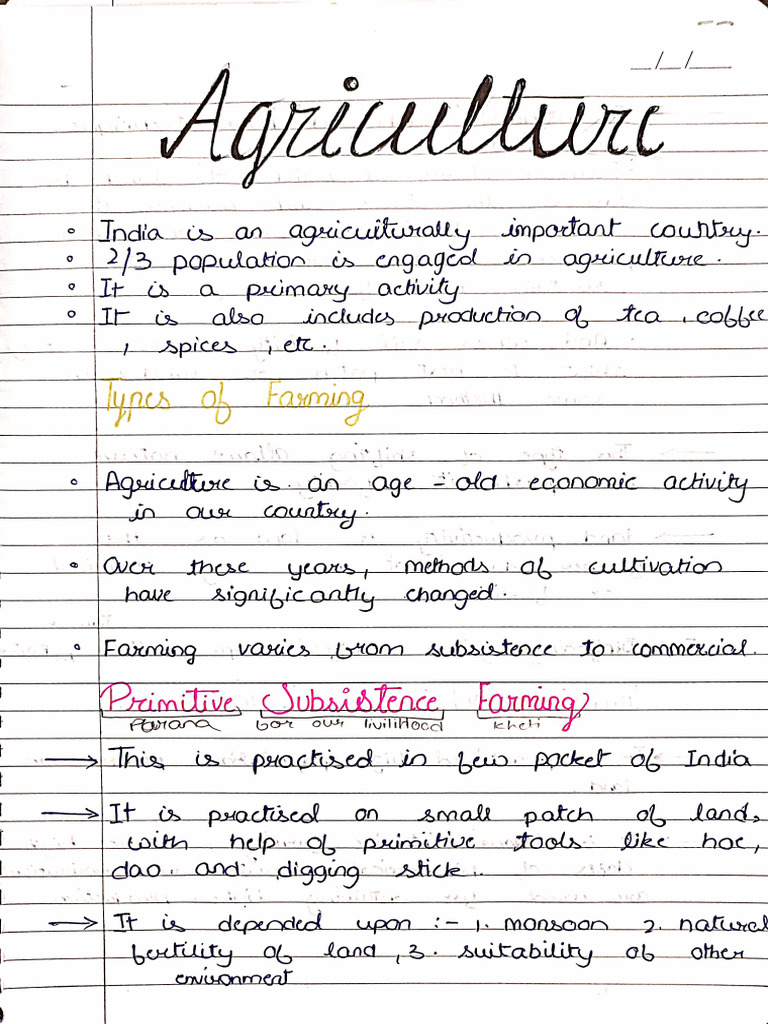 _/_/__
Agriculture
• India is an agriculturally important country.
• 2/3 population is engaged in agriculture.
• It is a primary activity
• It is also includes production of tea, coffee
, spices, etc.
Types of Farming
• Agriculture is an age-old economic activity
in our country.
• Over these years, methods of cultivation
have significantly changed.
• Farming varies from subsistence to commercial.
Primitive Subsistence Farming
Purana for our livilihood kheti
→ This is practised in few pocket of India
→ It is practised on small patch of land,
with help of primitive tools like hoe,
dao and digging stick.
→ It is depended upon :- 1. monsoon 2. natural
fertility of land, 3. suitability of other
environment